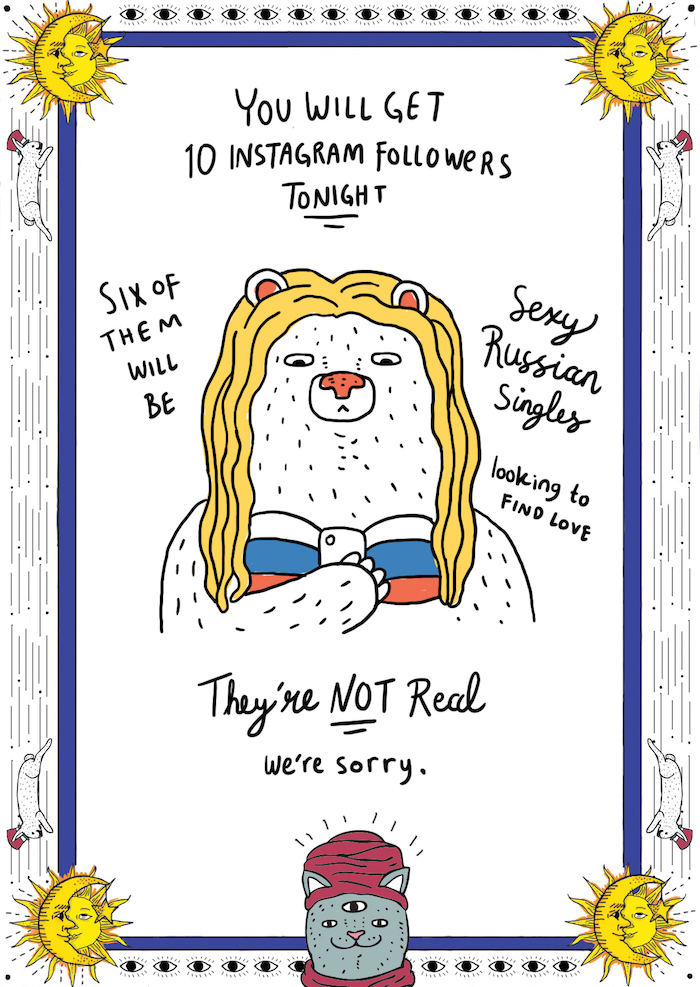 YOU WILL GET
10 INSTAGRAM FOLLOWERS
TONIGHT
SIX OF
THEM
WILL
BE
Sexy
Russian
Singles
looking to
FIND LOVE
They're NOT Real
we're sorry.